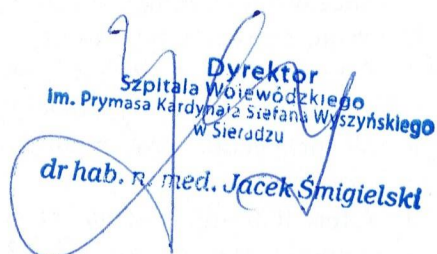 Dyrektor
Szpitala Wojewódzkiego
im. Prymasa Kardynała Stefana Wyszyńskiego
w Sieradzu
dr hab. n. med. Jacek Śmigielski